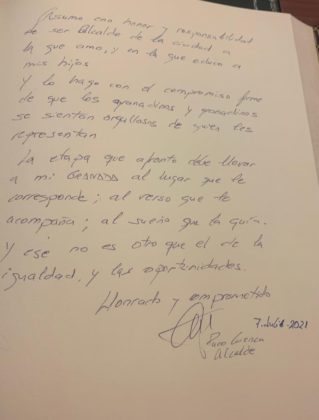 Asumo con honor y responsabilidad
de ser Alcalde de la ciudad a
la que amo, y en la que educo a
mis hijos
Y lo hago con el compromiso firme
de que los granadinos y granadinas
se sientan orgullosos de quien les
representan
La etapa que afronto debe llevar
a mi GRANADA al lugar que le
corresponde; al verso que le
acompaña; al sueño que la guía.
Y ese no es otro que el de la
igualdad, y las oportunidades.
Honrado y comprometido
7. Julio - 2021
Paco Cuenca
Alcalde